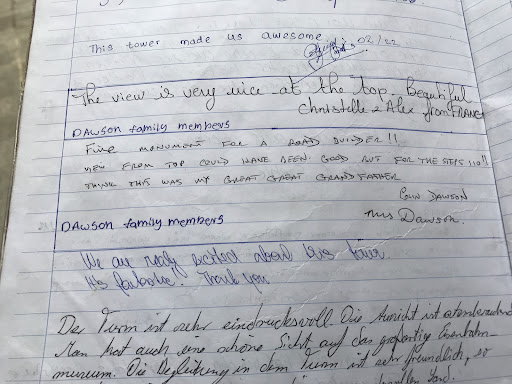 This tower made us awesome.
02/22
The view is very nice at the top. Beautiful
Christelle & Alex from FRANCE
DAWSON family members
FINE MONUMENT FOR A ROAD BUILDER !!
VIEW FROM TOP COULD HAVE BEEN GOOD BUT FOR THE STEPS 110 !!
THINK THIS WAS MY GREAT GREAT GRAND FATHER
COLIN DAWSON
DAWSON family members
Mrs Dawson.
We are really excited about this
It's fantastic. Thank you
Der Turm ist sehr eindrucksvoll. Die Aussicht ist atemberaubend
Man hat auch eine schöne Sicht auf das großartige Eisenbahn
museum. Die Begleitung in dem Turm ist sehr freundlich, so